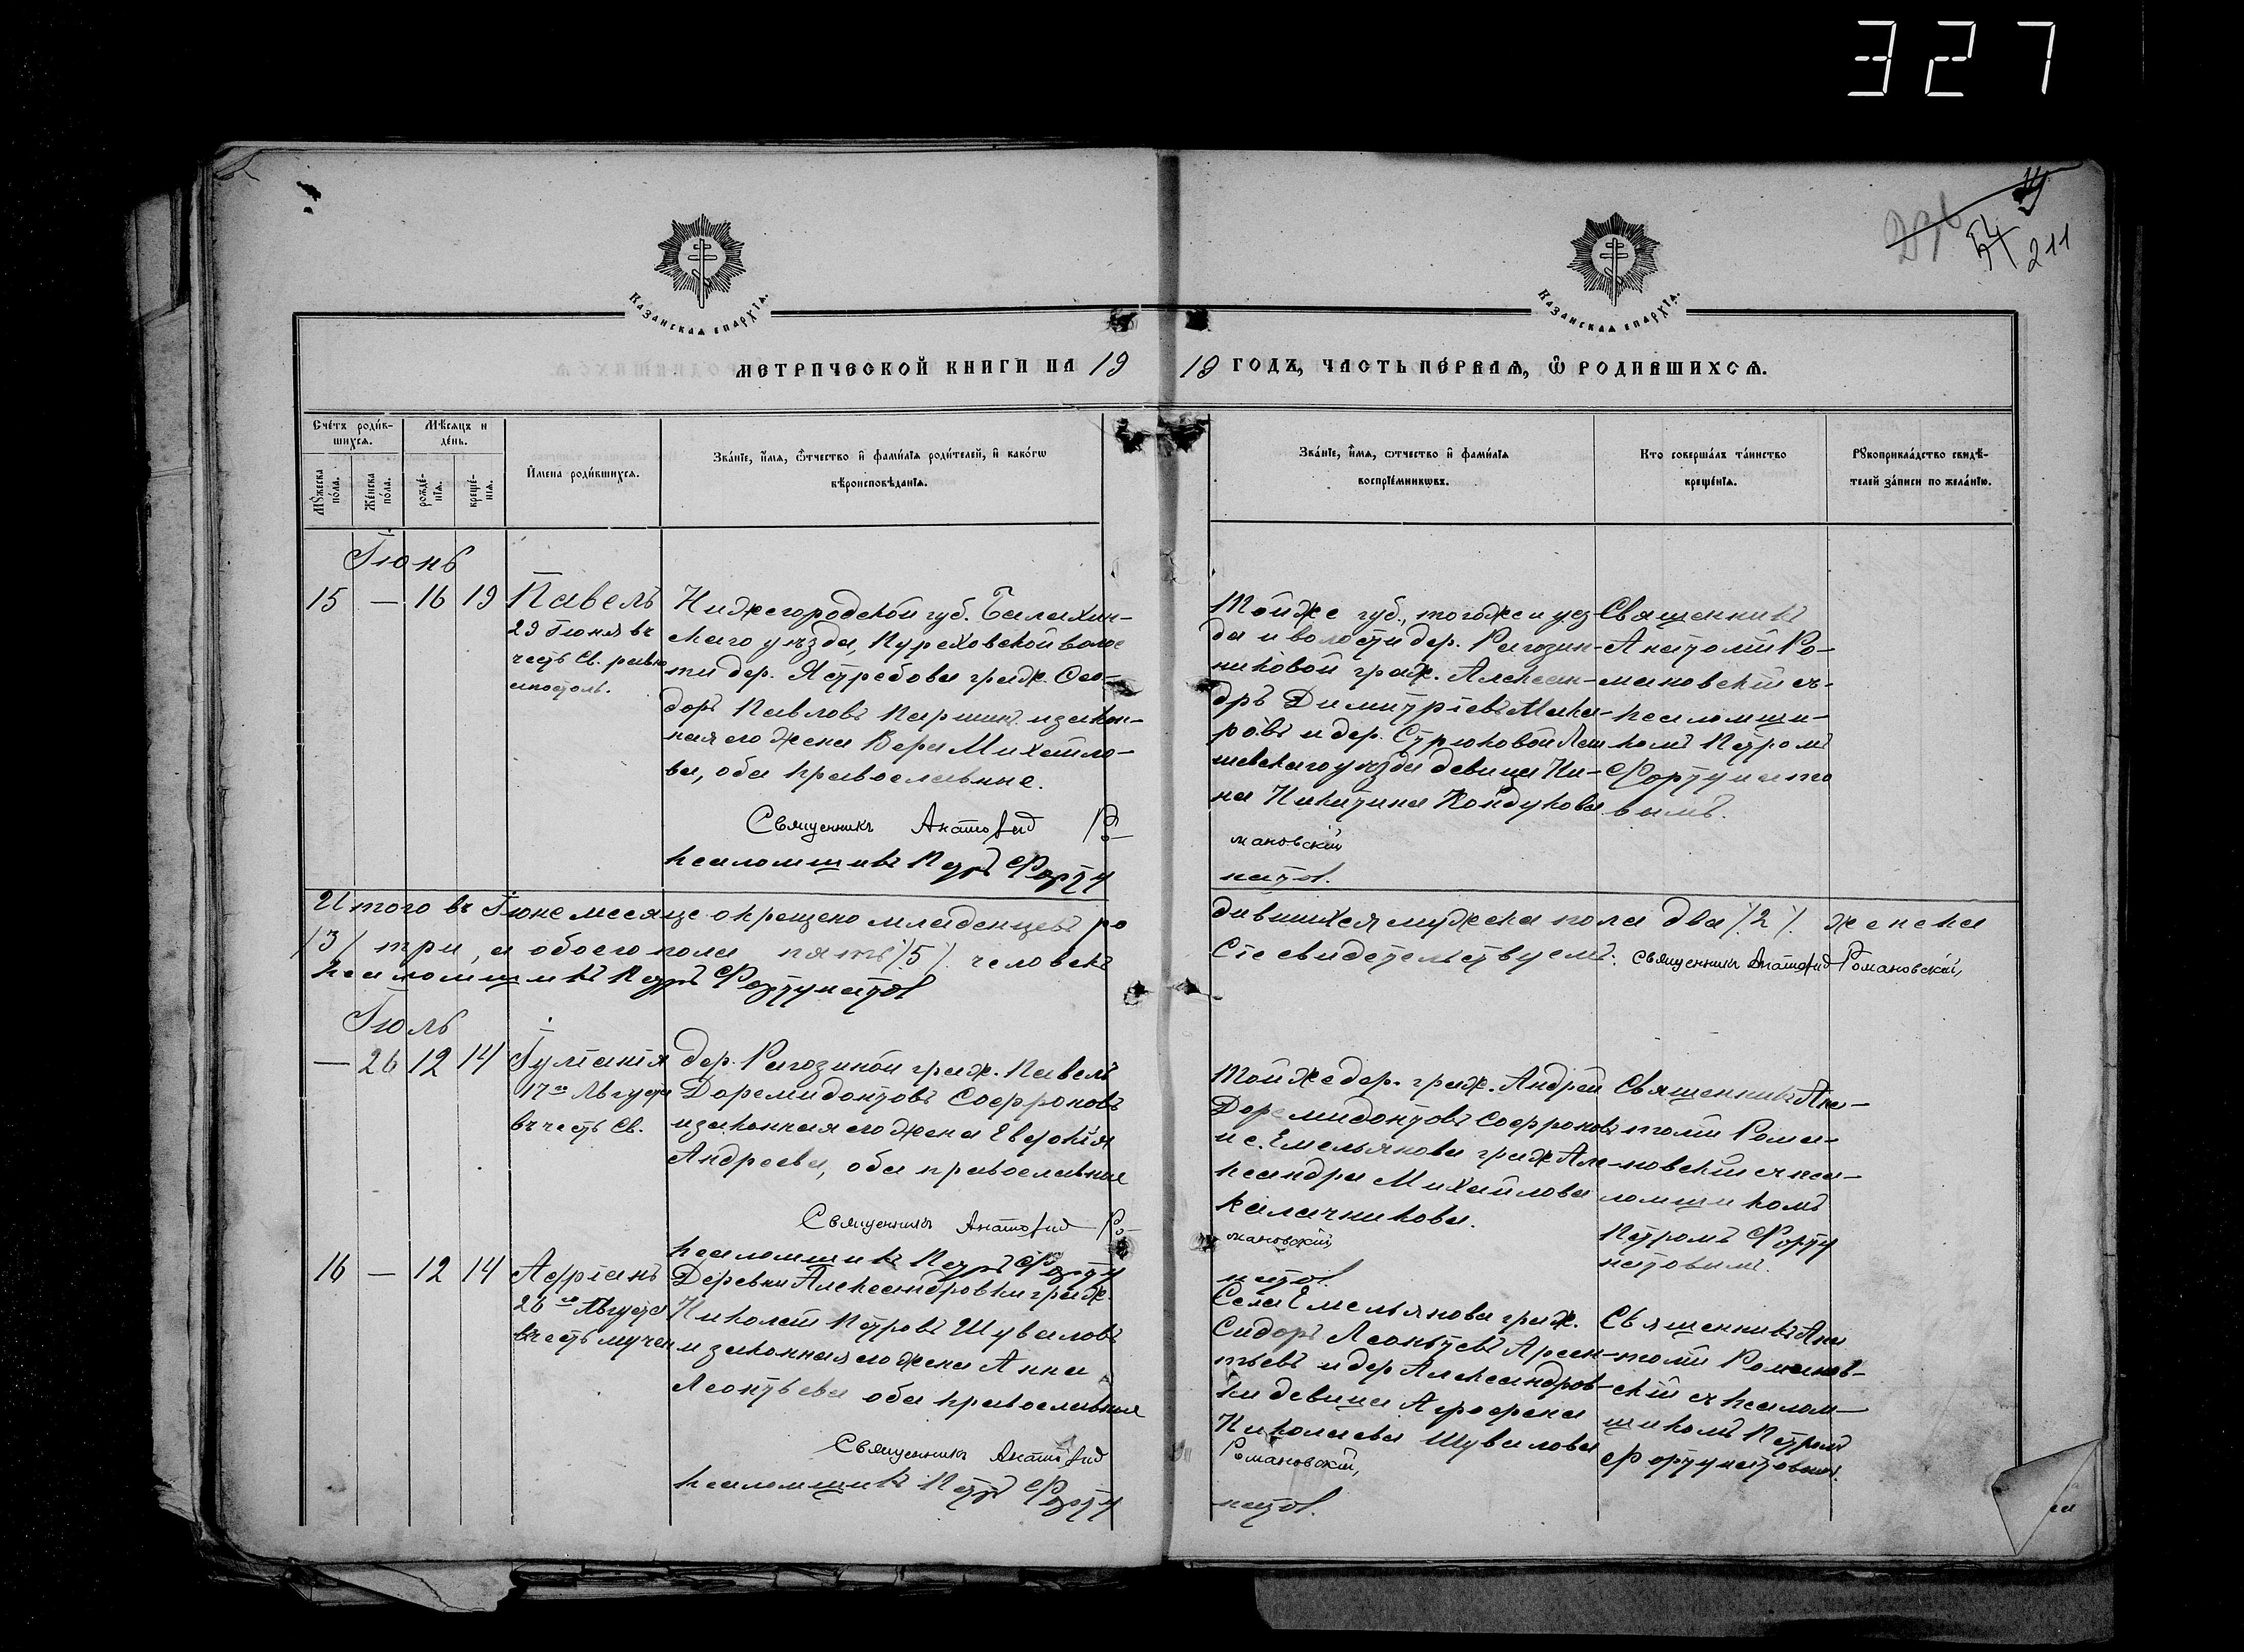 327
14
296
54
211
Казанская епархїа.
Казанская епархїа.
МЕТРИЧЕСКОЙ КНИГИ НА 19
19 ГОДЪ, ЧАСТЬ ПЕРВАЯ, Ѡ РОДИВШИХСѦ.
Счетъ родив-
шихсѧ.
Мѣсѧцъ и
день.
Мужеска
пола.
Женска
пола.
рожде-
нїѧ.
креще-
нїѧ.
Имена родившихсѧ.
Званїе, имѧ, ѻтчество и фамилїѧ родителей, и какогѡ
вѣроисповѣданїѧ.
Званїе, имѧ, ѻтчество и фамилїѧ
воспрїемникѡвъ.
Кто совершалъ таинство
крещенїѧ.
Рꙋкоприкладство свидѣ-
телей записи по желанїю.
Іюнь
15 — 16 19 Павелъ
29 Іюня въ
честь Св. равно
апостоль.
Нижегородской губ. Балахин-
скаго уѣзда, Пуреховской волос
ти дер. Ястребова граж. Ѳео-
доръ Павловъ Паршин и закон-
ная его жена Вера Михайло-
ва, оба православные.
Священникъ Анатолій Ро-
псаломщикъ Петръ Форту
Тойже губ., тогоже и уез
да и волости дер. Рагозин-
никовой граж. Алексан-
дръ Димитріевъ Мака-
ровъ и дер. Стрюковой Лаи
шевскаго уѣзда девица Ни-
на Никитина Кондукова
мановскій
натов.
Священникъ
Анатолій Ро-
мановскій съ
псаломщи-
комъ Петромъ
Фортунато
вымъ.
Итого въ Іюне месяце окрещено младенцевъ ро
дившихся мужска пола два /2/. женска
/3/ три, а обоего пола пять /5/. человекъ
Сіе свидетельствуемъ: Священникъ Анатолій Романовскій,
псаломщикъ Петръ Фортунатов
Іюль
— 26 12 14 Іуліанія
17го Августа
въ честь Св.
дер. Рагозиной граж. Павелъ
Доремидонтовъ Софроновъ
и законная его жена Евдокія
Андреева, оба православные
Священникъ Анатолій Ро-
псаломщикъ Петръ Форту
Тойже дер. граж. Андрей
Доремидонтовъ Софроновъ
и с. Емельянова граж Але-
ксандра Михайлова
Калачникова.
мановскій,
натов.
Священникъ Ана-
толій Рома-
новскій съ пса-
ломщикомъ
Петромъ Форту
натовымъ.
16 — 12 14 Адріанъ
26го Августа
въ честь мучен
Деревни Александровки граж.
Николай Петровъ Шуваловъ
и законная его жена Анна
Леонтьева оба православные
Священникъ Анатолій
псаломщикъ Петръ Форту
Села Емельянова граж.
Сидоръ Леонтьевъ Арсен-
тьевъ и дер Александров-
ки девица Агрофена
Николаева Шувалова
Романовскій,
натов.
Священникъ Ана
толій Романов-
скій съ псалом-
щикомъ Петромъ
Фортунатовым.